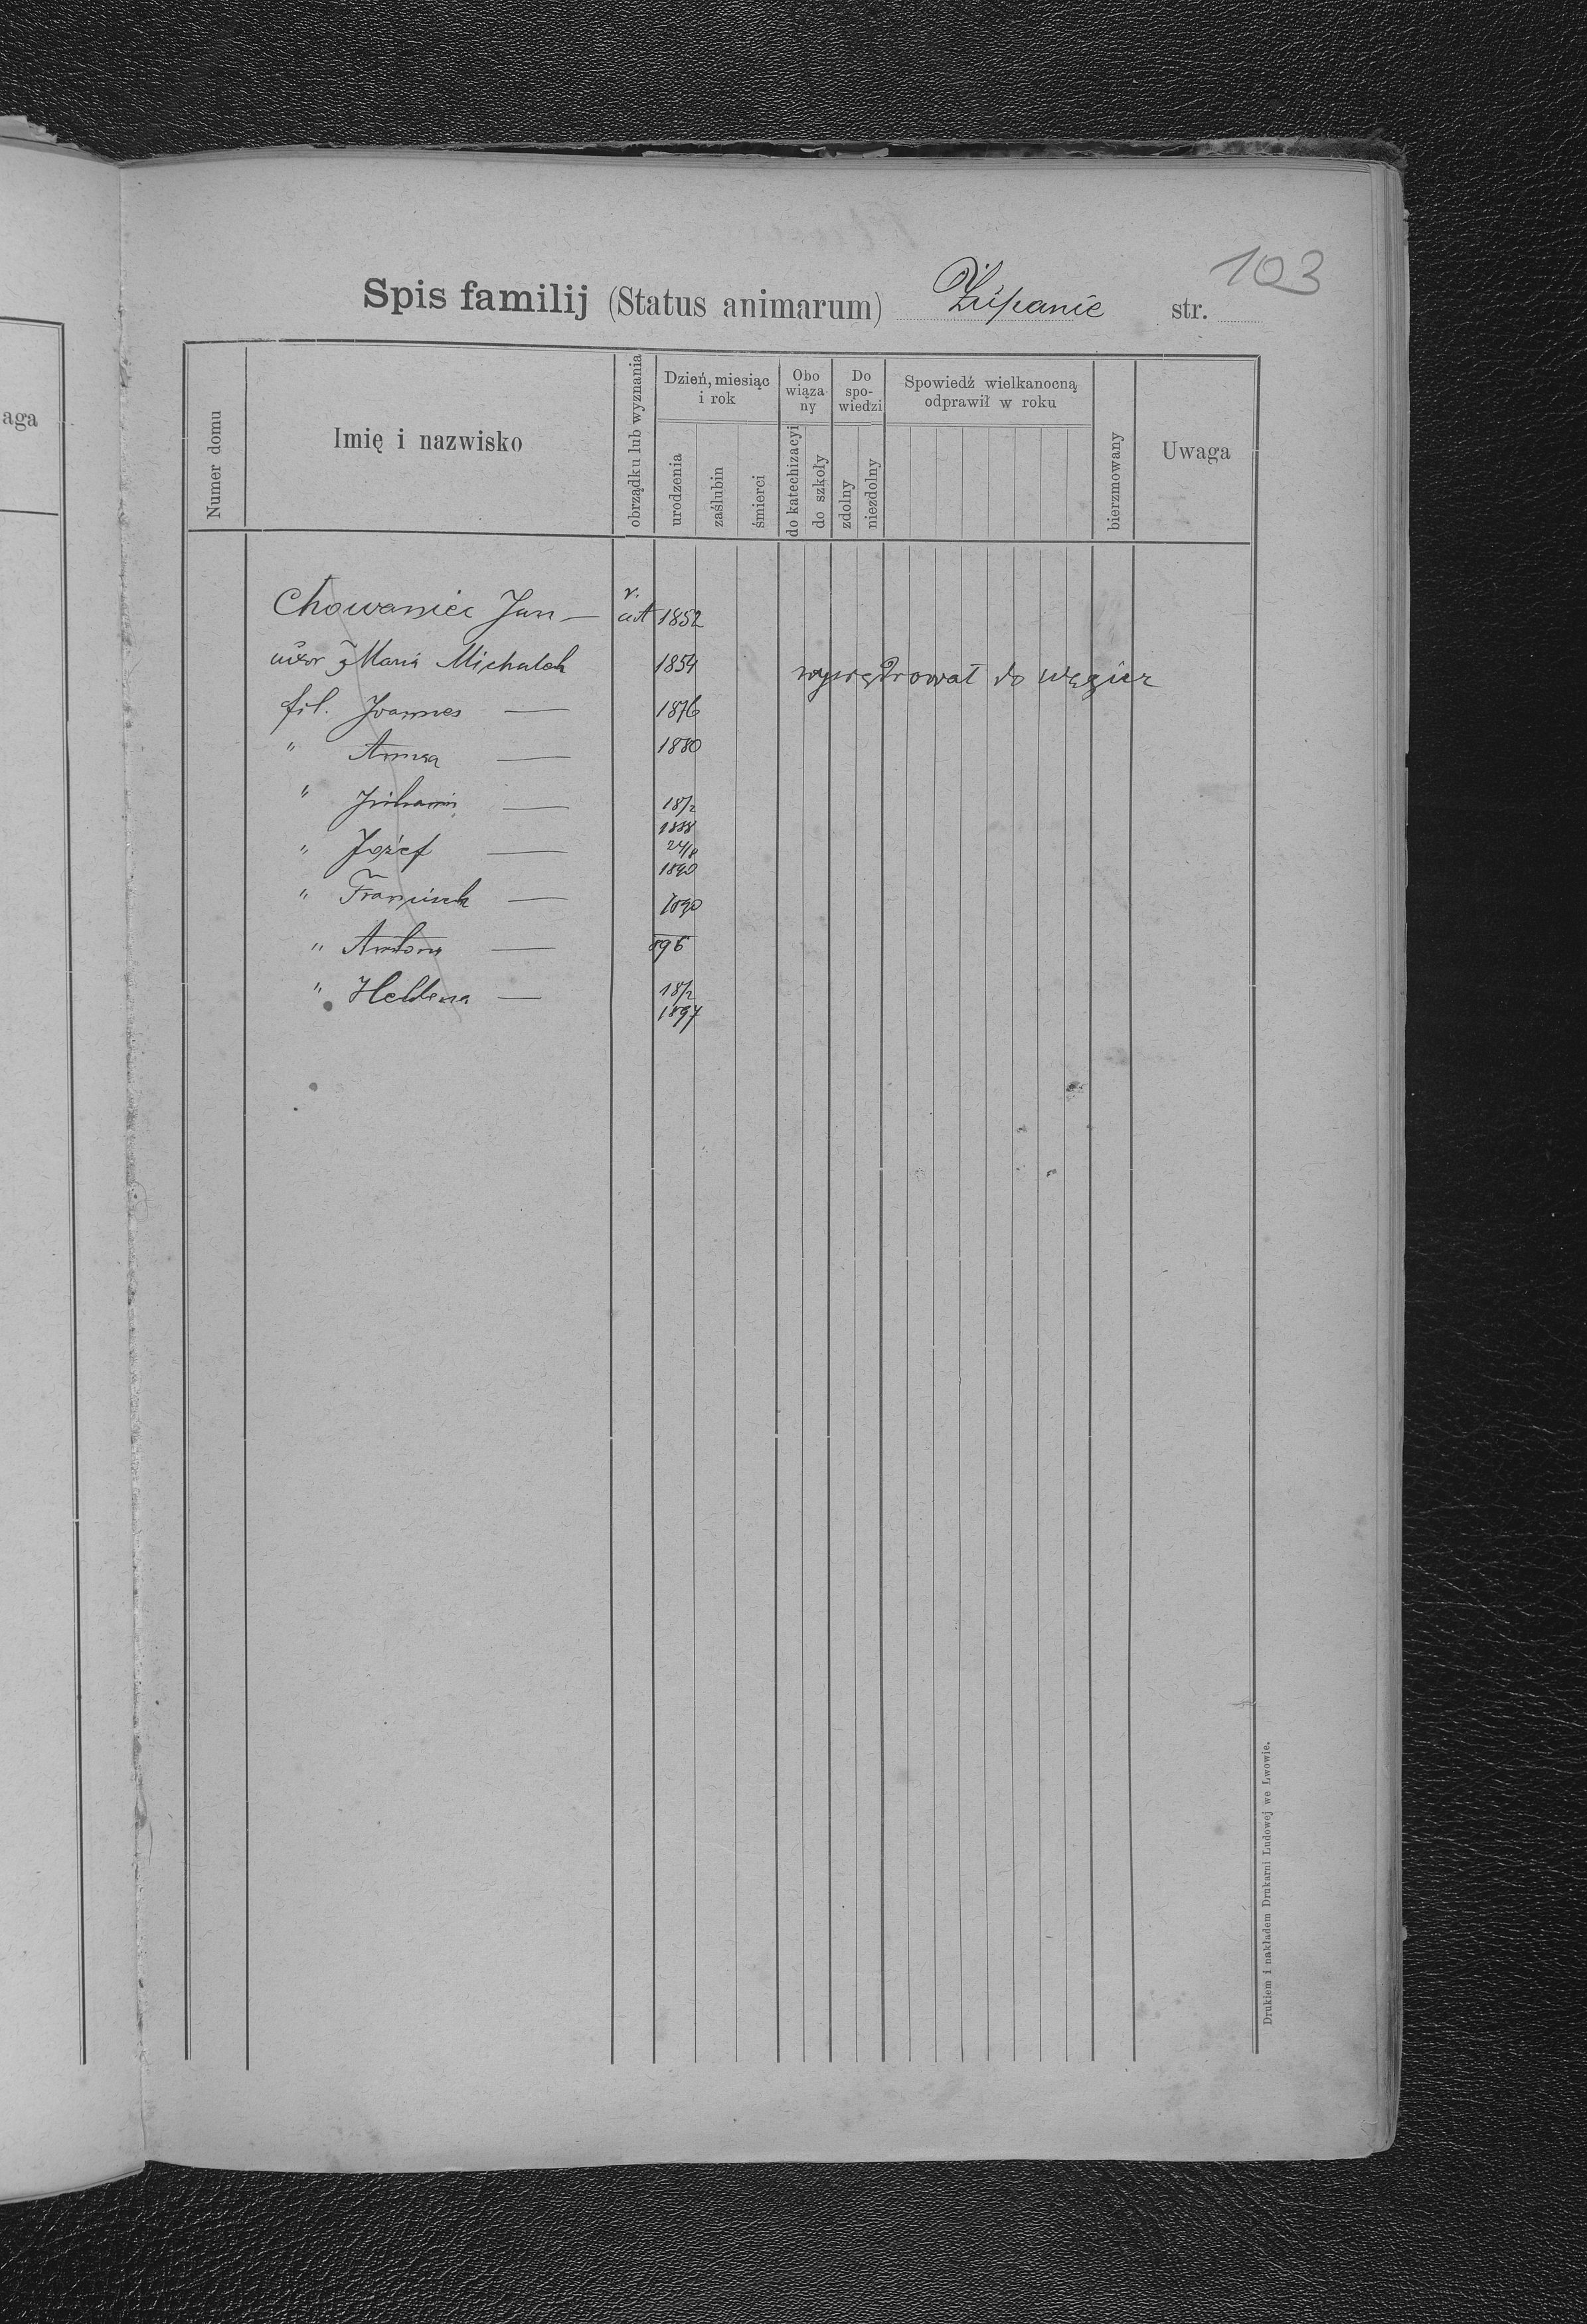 103
Spis familij (Status animarum) Żupanie str.
aga
Numer domu
Imię i nazwisko
obrządku lub wyznania
Dzień, miesiąc i rok
urodzenia
zaślubin
śmierci
Obo wiąza- ny
do katechizacyi
do szkoly
Do spo- wiedzi
zdolny
niezdolny
Spowiedź wielkanocną odprawił w roku
bierzmowany
Uwaga
Chowaniec Jan — 1852
uxor Maria Michalak 1854
wywędrował do Węgier
fil. Joannes — 1876
" Anna — 1880
" — 18/2 1888
" Józef — 24/8 1890
" Francisck — 1890
" Antoni — 896
" Hellena — 18/2 1897
Drukiem i nakładem Drukarni Ludowej we Lwowie.